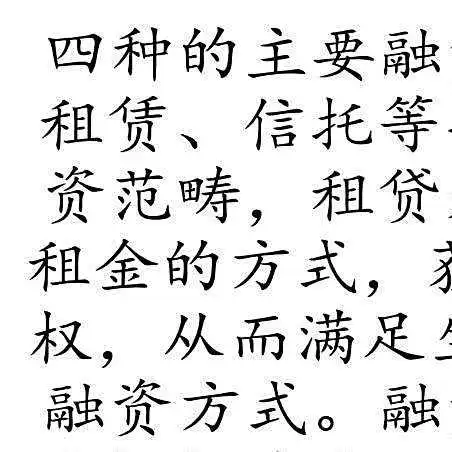 四种的主要融
租赁、信托等
资范畴，租贷
租金的方式，
权，从而满足
融资方式。融